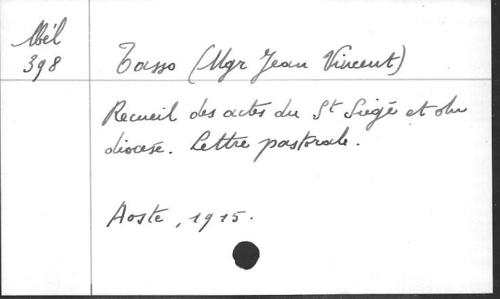 Mél
398
Tasso (Mgr Jean Vincent)
Recueil des actes du St Siège et du
diocèse. Lettre pastorale.
Aoste, 1915.